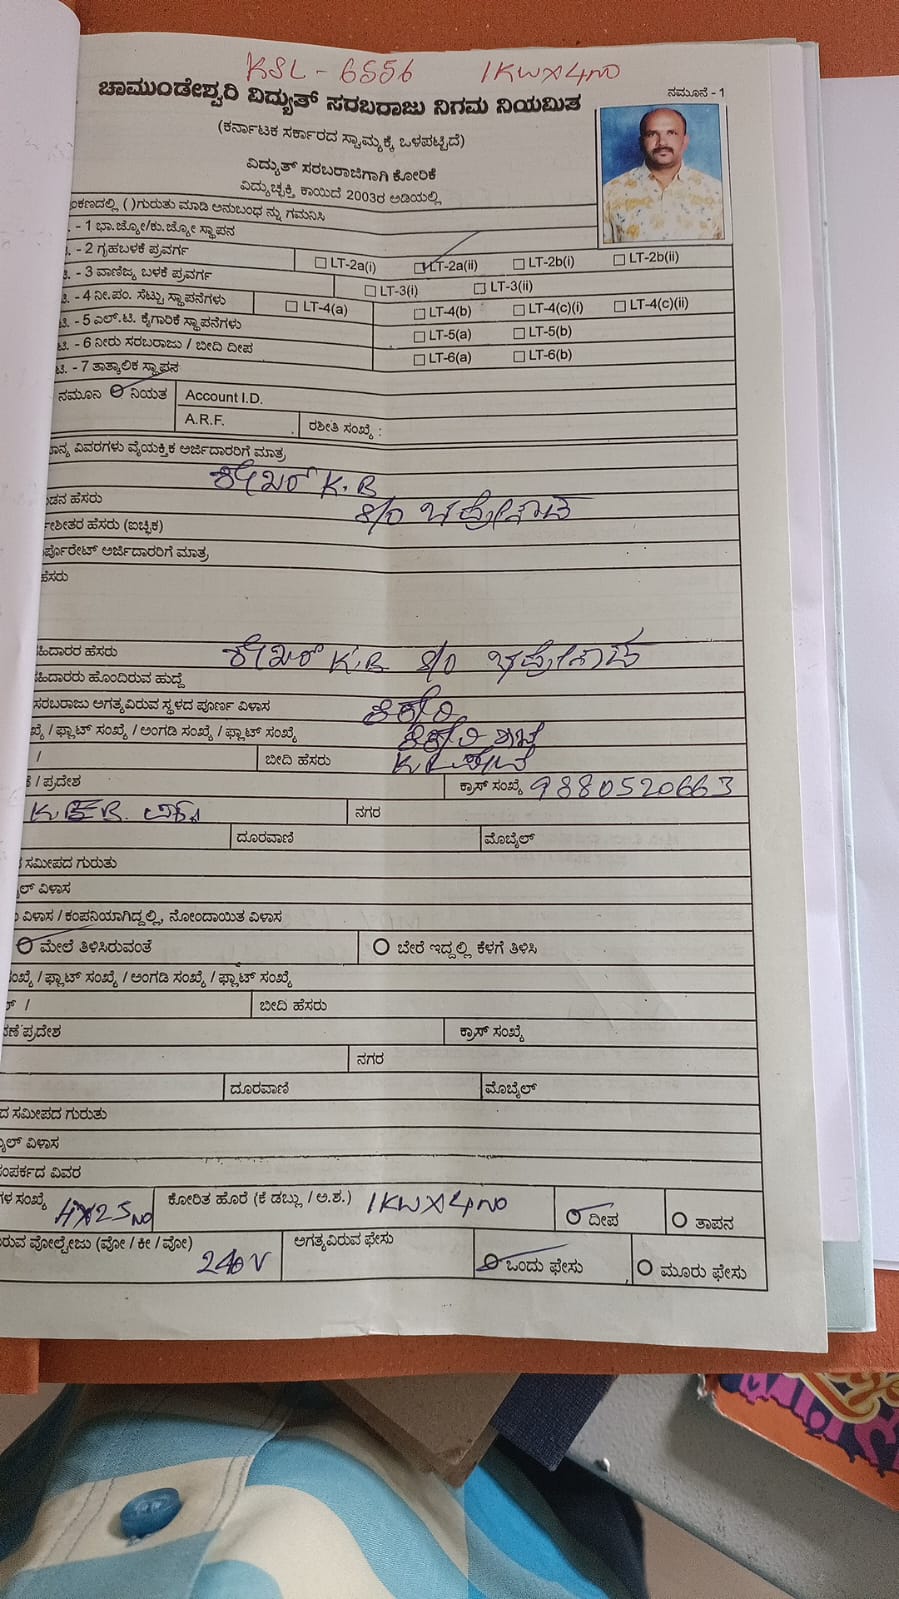 KSL - 6556 1KWX4no
ನಮೂನೆ - 1
ಚಾಮುಂಡೇಶ್ವರಿ ವಿದ್ಯುತ್ ಸರಬರಾಜು ನಿಗಮ ನಿಯಮಿತ
(ಕರ್ನಾಟಕ ಸರ್ಕಾರದ ಸ್ವಾಮ್ಯಕ್ಕೆ ಒಳಪಟ್ಟಿದೆ)
ವಿದ್ಯುತ್ ಸರಬರಾಜಿಗಾಗಿ ಕೋರಿಕೆ
ವಿದ್ಯುಚ್ಛಕ್ತಿ ಕಾಯಿದೆ 2003ರ ಅಡಿಯಲ್ಲಿ
ಂಕಣದಲ್ಲಿ ( )ಗುರುತು ಮಾಡಿ ಅನುಬಂಧ ನ್ನು ಗಮನಿಸಿ
. - 1 ಭಾ.ಜ್ಯೋ/ಕು.ಜ್ಯೋ ಸ್ಥಾಪನ
. - 2 ಗೃಹಬಳಕೆ ಪ್ರವರ್ಗ LT-2a(i) LT-2a(ii) LT-2b(i) LT-2b(ii)
. - 3 ವಾಣಿಜ್ಯ ಬಳಕೆ ಪ್ರವರ್ಗ LT-3(i) LT-3(ii)
ಟಿ. - 4 ನೀ.ಪಂ. ಸೆಟ್ಟು ಸ್ಥಾಪನೆಗಳು LT-4(a) LT-4(b) LT-4(c)(i) LT-4(c)(ii)
ಟಿ. - 5 ಎಲ್.ಟಿ. ಕೈಗಾರಿಕೆ ಸ್ಥಾಪನೆಗಳು LT-5(a) LT-5(b)
ಟಿ. - 6 ನೀರು ಸರಬರಾಜು / ಬೀದಿ ದೀಪ LT-6(a) LT-6(b)
ಟಿ. - 7 ತಾತ್ಕಾಲಿಕ ಸ್ಥಾಪನ
ನಮೂನಿ ನಿಯತ Account I.D.
A.R.F. ರಶೀತಿ ಸಂಖ್ಯೆ :
ಾನ್ಯ ವಿವರಗಳು ವೈಯಕ್ತಿಕ ಅರ್ಜಿದಾರರಿಗೆ ಮಾತ್ರ
ಶೇಖರ್ K.B
ಡನ ಹೆಸರು S/O
ೀಶಿತರ ಹೆಸರು (ಐಚ್ಛಿಕ)
ರ್ಪೊರೇಟ್ ಅರ್ಜಿದಾರರಿಗೆ ಮಾತ್ರ
ಹೆಸರು
ಹಿದಾರರ ಹೆಸರು ಶೇಖರ್ K.B S/O
ಹಿದಾರರು ಹೊಂದಿರುವ ಹುದ್ದೆ
ಸರಬರಾಜು ಅಗತ್ಯವಿರುವ ಸ್ಥಳದ ಪೂರ್ಣ ವಿಳಾಸ ಕಿಕ್ಕೇರಿ
ಖ್ಯೆ / ಫ್ಲಾಟ್ ಸಂಖ್ಯೆ / ಅಂಗಡಿ ಸಂಖ್ಯೆ / ಫ್ಲಾಟ್ ಸಂಖ್ಯೆ ಕಿಕ್ಕೇರಿ
/ ಬೀದಿ ಹೆಸರು K.R.ಪೇಟೆ
ೆ / ಪ್ರದೇಶ ಕ್ರಾಸ್ ಸಂಖ್ಯೆ 9880520663
K.E.B. ನಗರ
ದೂರವಾಣಿ ಮೊಬೈಲ್
ಸಮೀಪದ ಗುರುತು
ಲ್ ವಿಳಾಸ
ವಿಳಾಸ / ಕಂಪನಿಯಾಗಿದ್ದಲ್ಲಿ, ನೋಂದಾಯಿತ ವಿಳಾಸ
ಮೇಲೆ ತಿಳಿಸಿರುವಂತೆ ಬೇರೆ ಇದ್ದಲ್ಲಿ ಕೆಳಗೆ ತಿಳಿಸಿ
ಸಂಖ್ಯೆ / ಫ್ಲಾಟ್ ಸಂಖ್ಯೆ / ಅಂಗಡಿ ಸಂಖ್ಯೆ / ಫ್ಲಾಟ್ ಸಂಖ್ಯೆ
/ ಬೀದಿ ಹೆಸರು
ಣೆ ಪ್ರದೇಶ ಕ್ರಾಸ್ ಸಂಖ್ಯೆ
ನಗರ
ದೂರವಾಣಿ ಮೊಬೈಲ್
ದ ಸಮೀಪದ ಗುರುತು
ಲ್ ವಿಳಾಸ
ಸಂಪರ್ಕದ ವಿವರ
ಗಳ ಸಂಖ್ಯೆ ಕೋರಿತ ಹೊರೆ (ಕೆ ಡಬ್ಲು / ಅ.ಶ.) 1KWX4no ದೀಪ ತಾಪನ
ರುವ ವೋಲ್ಟೇಜು (ವೋ / ಕೀ / ವೋ) 240 V ಅಗತ್ಯವಿರುವ ಫೇಸು ಒಂದು ಫೇಸು ಮೂರು ಫೇಸು